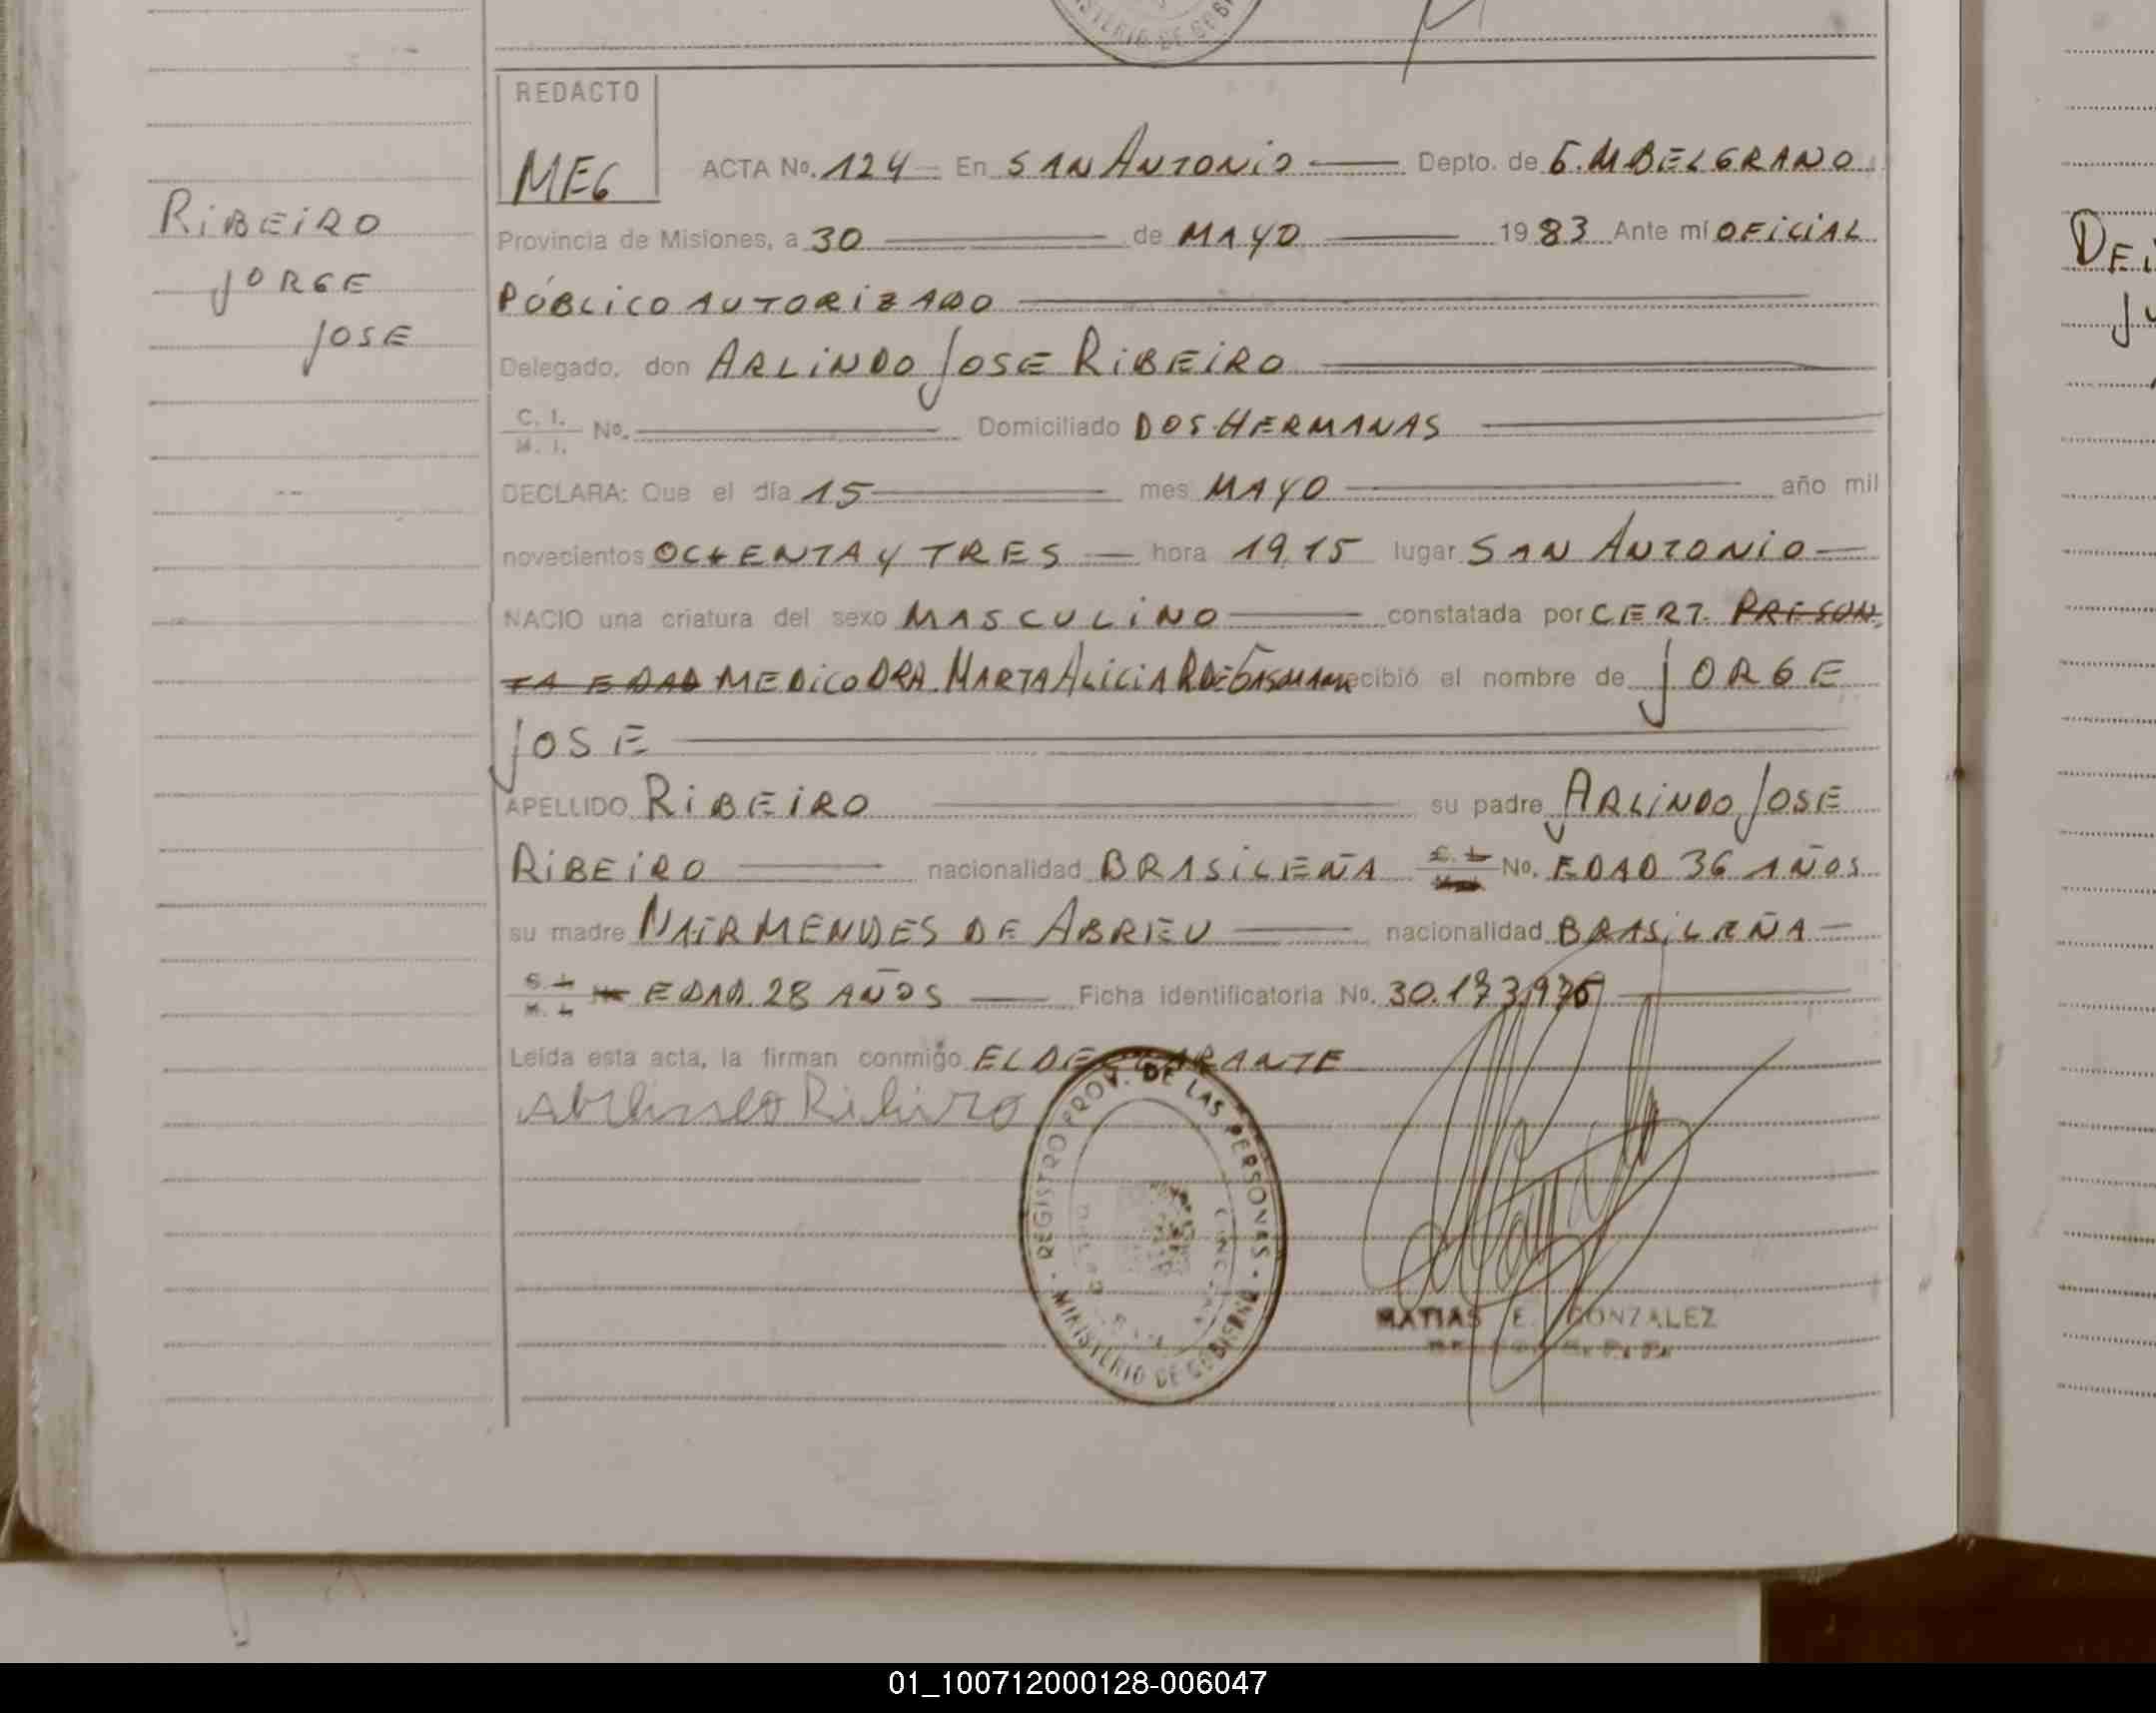 REDACTO
MEG
ACTA No. 124 En SAN ANTONIO Depto. de G.M BELGRANO
RIBEIRO
JORGE
JOSE
Provincia de Misiones, a 30 de MAYO 1983 Ante mí OFICIAL
PÚBLICO AUTORIZADO
Delegado, don ARLINDO JOSE RIBEIRO
C. I. M. I. No. Domiciliado DOS HERMANAS
DECLARA: Que el día 15 mes MAYO año mil
novecientos OCHENTA Y TRES hora 19,15 lugar SAN ANTONIO
NACIO una criatura del sexo MASCULINO constatada por CERT. PRESON
TA EDAD MEDICO DRA. MARTA ALICIA R DE recibió el nombre de JORGE
JOSE
APELLIDO RIBEIRO su padre ARLINDO JOSE
RIBEIRO nacionalidad BRASILEÑA C. I. No. EDAD 36 AÑOS
su madre NAIR MENDES DE ABREU nacionalidad BRASILEÑA
C. I. M. I. EDAD 28 AÑOS Ficha identificatoria No.
Leída esta acta, la firman conmigo EL DECLARANTE
Ribeiro
REGISTRO PROV. DE LAS PERSONAS
MINISTERIO DE GOBIERNO
MATIAS E. GONZALEZ
01_100712000128-006047